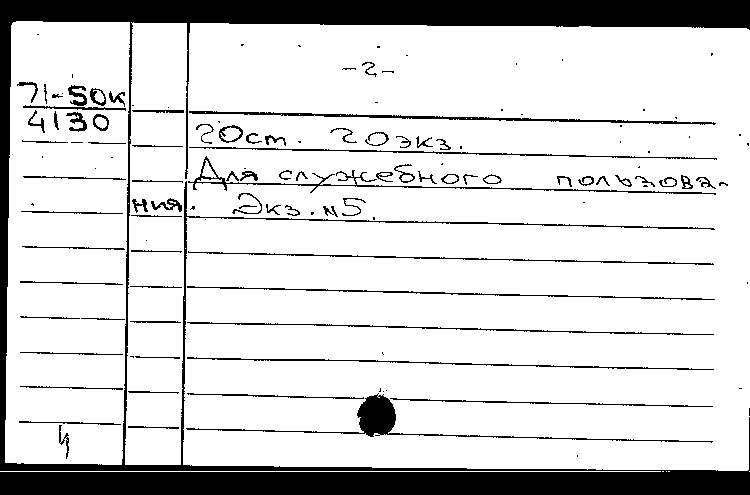 -2-
71-50к
4130
20 ст. 20 экз.
Для служебного пользова-
ния. Экз. №5.